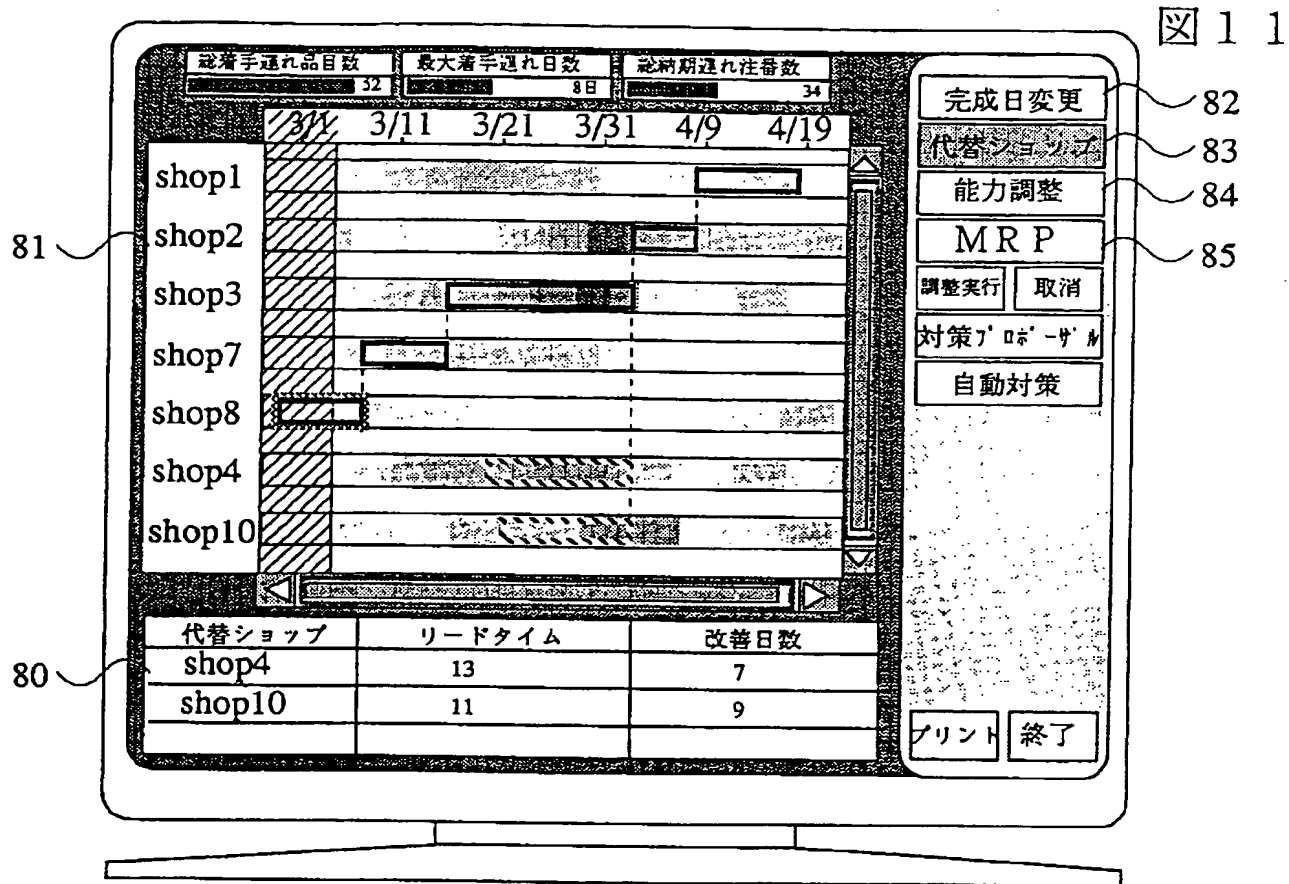 図11
総着手遅れ品目数 最大着手遅れ日数 総納期遅れ注番数
52 8日 34
3/1 3/11 3/21 3/31 4/9 4/19
shop1
shop2
shop3
shop7
shop8
shop4
shop10
81
完成日変更 82
代替ショップ 83
能力調整 84
MRP 85
調整実行 取消
対策プロポーザル
自動対策
プリント 終了
80
代替ショップ リードタイム 改善日数
shop4 13 7
shop10 11 9